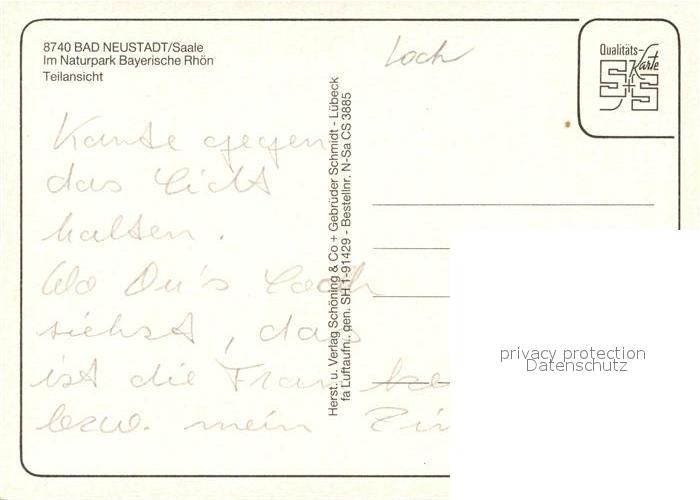 8740 BAD NEUSTADT/Saale
Im Naturpark Bayerische Rhön
Teilansicht
Loch
Qualitäts-
Karte
S+S
Karte gegen
das Licht
halten.
Wo Du's Loch
siehst, das
ist die Fran
bzw. mein
Herst. u. Verlag Schöning & Co + Gebrüder Schmidt - Lübeck
fa Luftaufn. gen. SH 1-91429 - Bestellnr. N-Sa CS 3885
privacy protection
Datenschutz